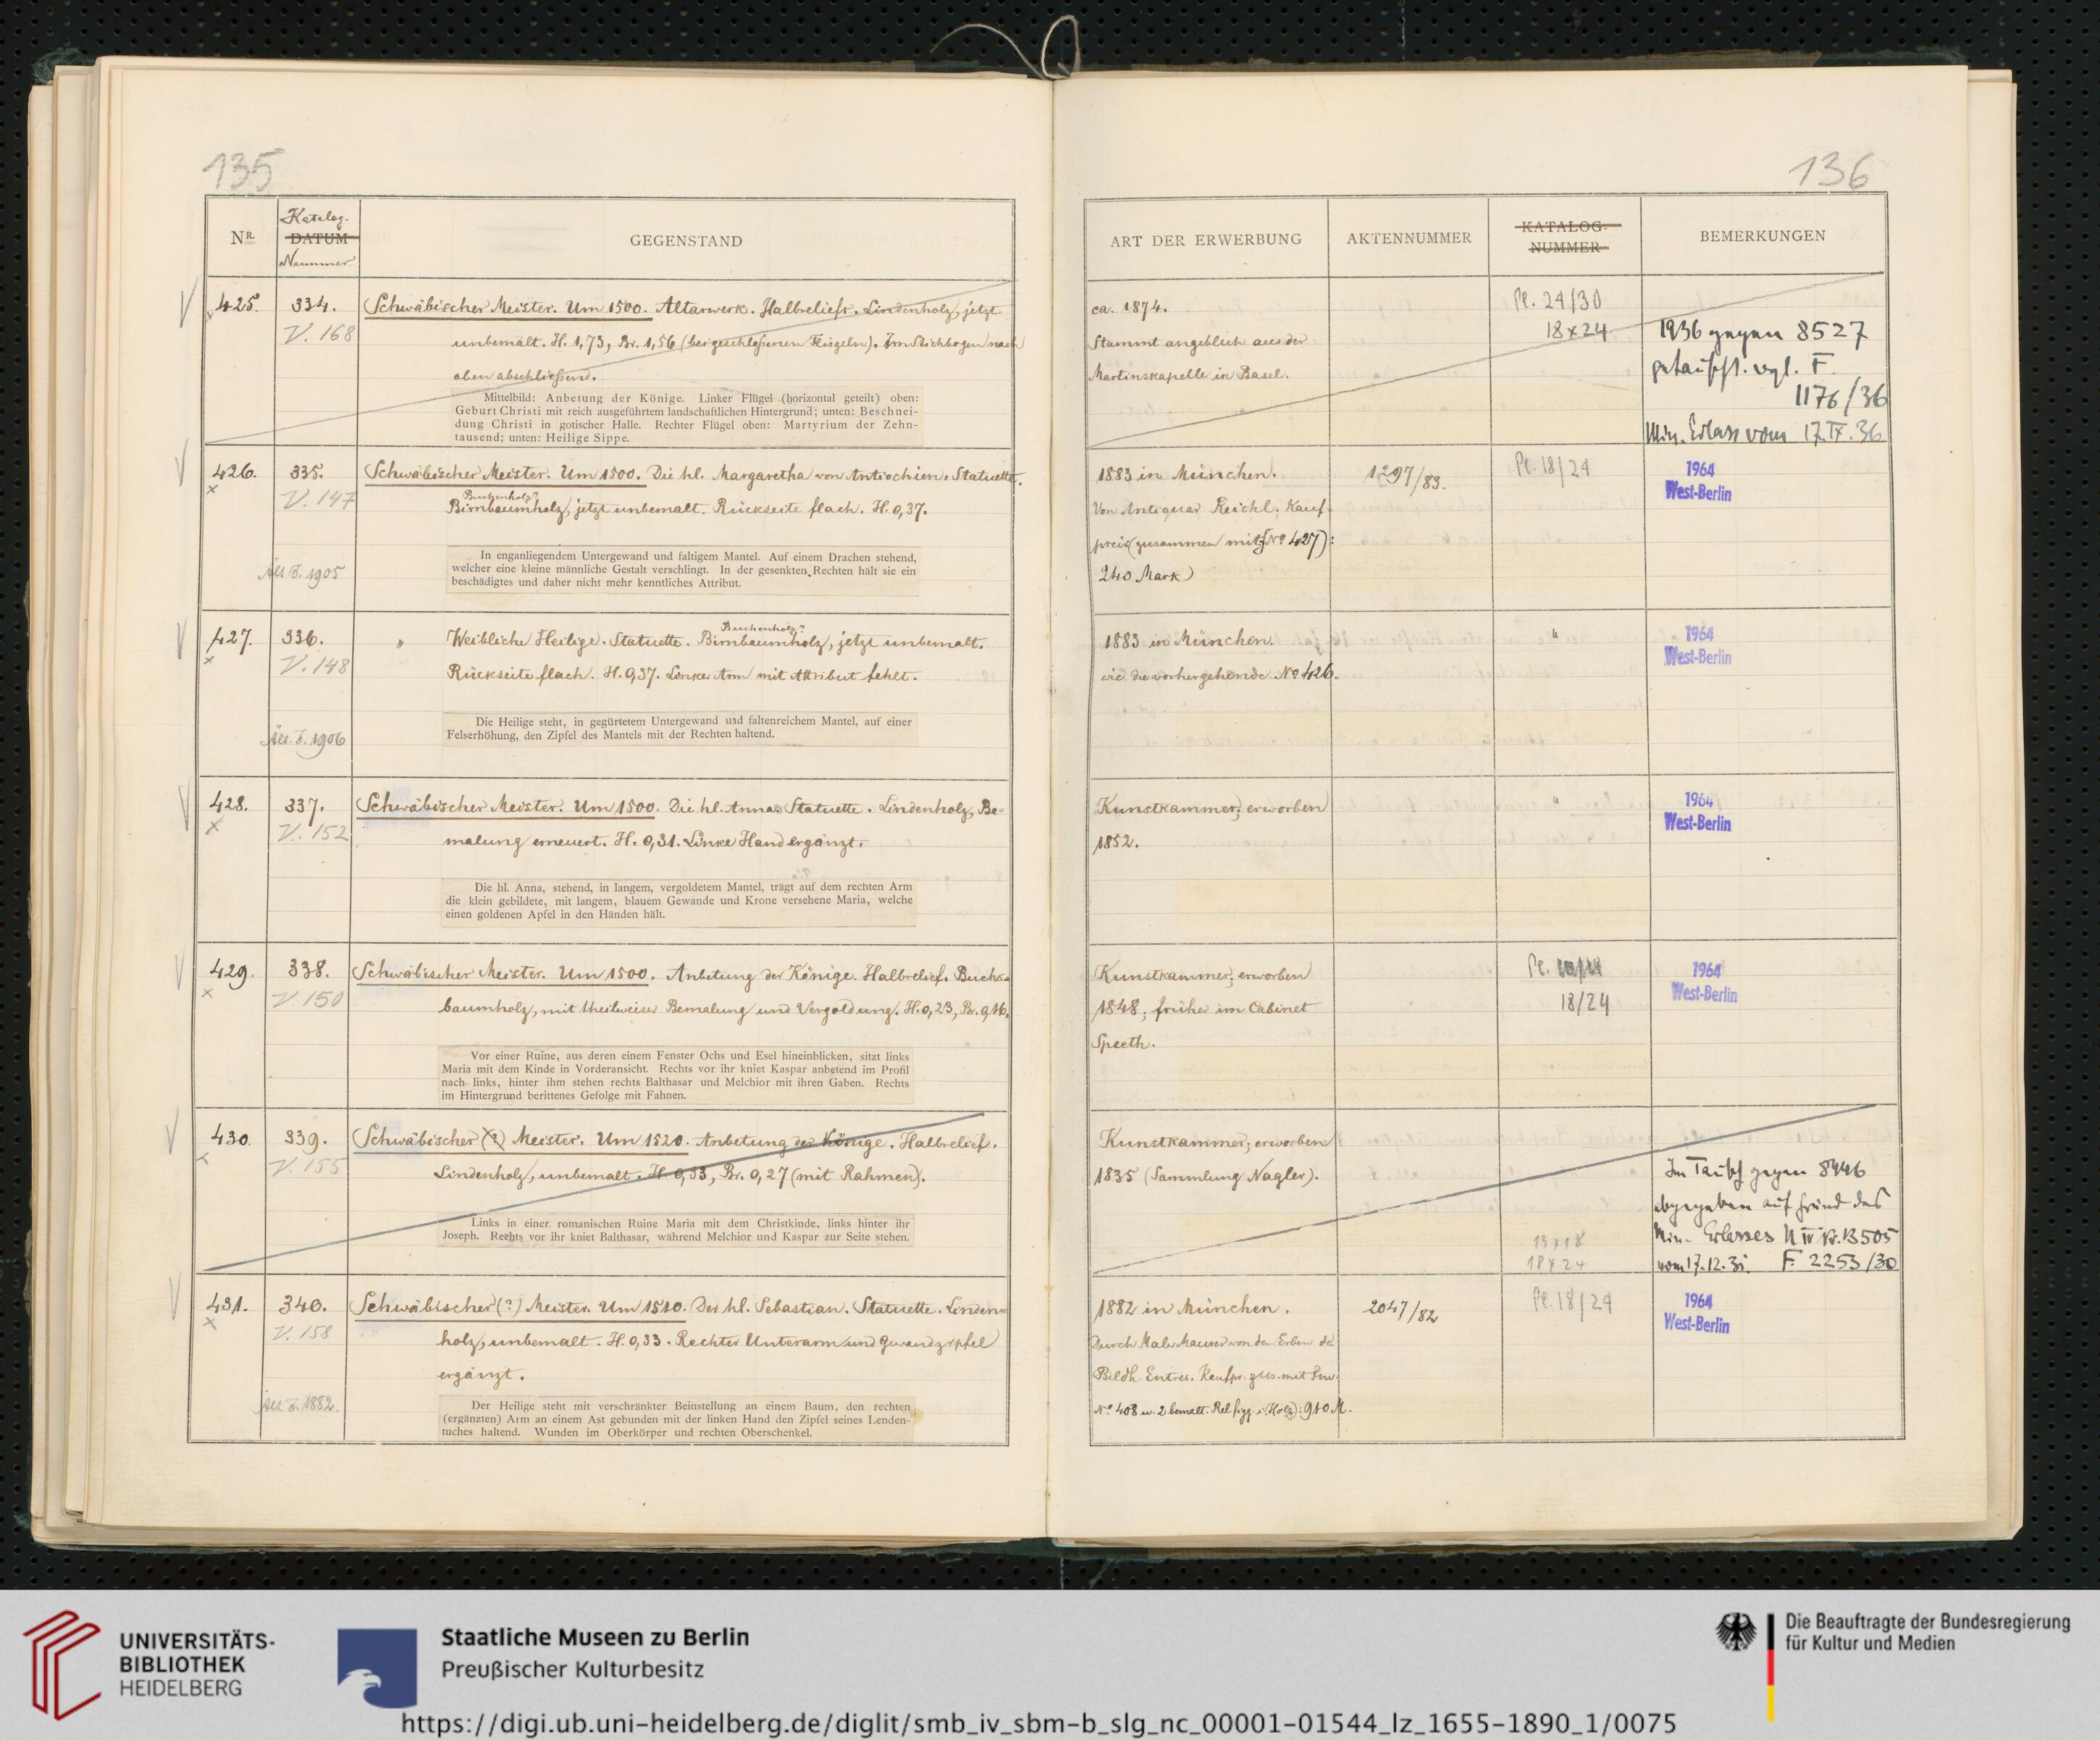 135
136
NR.
Katalog-
DATUM
Nummer.
GEGENSTAND
ART DER ERWERBUNG
AKTENNUMMER
KATALOG-
NUMMER
BEMERKUNGEN
425.
334.
V. 168
Schwäbischer Meister. Um 1500. Altarwerk. Halbreliefs. Lindenholz, jetzt
unbemalt. H. 1,73, Br. 1,56 (bei geschloßenen Flügeln). Im Stichbogen nach
oben abschließend.
Mittelbild: Anbetung der Könige. Linker Flügel (horizontal geteilt) oben:
Geburt Christi mit reich ausgeführtem landschaftlichen Hintergrund; unten: Beschnei-
dung Christi in gotischer Halle. Rechter Flügel oben: Martyrium der Zehn-
tausend; unten: Heilige Sippe.
ca. 1874.
Stammt angeblich aus der
Martinskapelle in Basel.
Pl. 24/30
18x24
1936 gegen 8527
getauscht. vgl. F.
1176/36
Min. Erlass vom 17.IX.36
426.
x
335.
V. 147
Schwäbischer Meister. Um 1500. Die hl. Margaretha von Antiochien. Statuette.
Buchenholz?
Birnbaumholz, jetzt unbemalt. Rückseite flach. H. 0,37.
In enganliegendem Untergewand und faltigem Mantel. Auf einem Drachen stehend,
welcher eine kleine männliche Gestalt verschlingt. In der gesenkten Rechten hält sie ein
beschädigtes und daher nicht mehr kenntliches Attribut.
1905
1883 in München.
Von Antiquar Reichl. Kauf-
preis (zusammen mit No 427):
240 Mark)
1297/83.
Pl. 18/24
1964
West-Berlin
427.
x
336.
V. 148
" Weibliche Heilige. Statuette. Birnbaumholz, jetzt unbemalt.
Buchenholz?
Rückseite flach. H. 0,37. Linker Arm mit Attribut fehlt.
Die Heilige steht, in gegürtetem Untergewand und faltenreichem Mantel, auf einer
Felserhöhung, den Zipfel des Mantels mit der Rechten haltend.
1906
1883 in München.
wie die vorhergehende No 426.
"
1964
West-Berlin
428.
x
337.
V. 152
Schwäbischer Meister. Um 1500. Die hl. Anna. Statuette. Lindenholz, Be-
malung erneuert. H. 0,31. Linke Hand ergänzt.
Die hl. Anna, stehend, in langem, vergoldetem Mantel, trägt auf dem rechten Arm
die klein gebildete, mit langem, blauem Gewande und Krone versehene Maria, welche
einen goldenen Apfel in den Händen hält.
Kunstkammer; erworben
1852.
"
1964
West-Berlin
429.
x
338.
V. 150
Schwäbischer Meister. Um 1500. Anbetung der Könige. Halbrelief. Buchs-
baumholz, mit theilweiser Bemalung und Vergoldung. H. 0,23, Br. 0,16.
Vor einer Ruine, aus deren einem Fenster Ochs und Esel hineinblicken, sitzt links
Maria mit dem Kinde in Vorderansicht. Rechts vor ihr kniet Kaspar anbetend im Profil
nach links, hinter ihm stehen rechts Balthasar und Melchior mit ihren Gaben. Rechts
im Hintergrund berittenes Gefolge mit Fahnen.
Kunstkammer; erworben
1848; früher im Cabinet
Speeth.
Pl.
18/24
1964
West-Berlin
430.
339.
V. 155
Schwäbischer (?) Meister. Um 1520. Anbetung der Könige. Halbrelief.
Lindenholz, unbemalt. H. 0,33, Br. 0,27 (mit Rahmen).
Links in einer romanischen Ruine Maria mit dem Christkinde, links hinter ihr
Joseph. Rechts vor ihr kniet Balthasar, während Melchior und Kaspar zur Seite stehen.
Kunstkammer; erworben
1835 (Sammlung Nagler).
13x18
18x24
Im Tausch gegen 8446
abgegeben auf Grund des
Min. Erlasses U IV Nr. 13505
vom 17.12.31. F. 2253/30
431.
x
340.
V. 158
Schwäbischer (?) Meister. Um 1510. Der hl. Sebastian. Statuette. Linden-
holz, unbemalt. H. 0,33. Rechter Unterarm und Gewandzipfel
ergänzt.
Der Heilige steht mit verschränkter Beinstellung an einem Baum, den rechten
(ergänzten) Arm an einem Ast gebunden mit der linken Hand den Zipfel seines Lenden-
tuches haltend. Wunden im Oberkörper und rechten Oberschenkel.
1882.
1882 in München.
Durch Maler Maurer von den Erben des
Bildh. Entres. Kaufpr. zus. mit Inv.
No 408 u. 2 bemalt. Relfigg. i. (Holz): 910 M.
2047/82
Pl. 18/24
1964
West-Berlin
UNIVERSITÄTS-
BIBLIOTHEK
HEIDELBERG
Staatliche Museen zu Berlin
Preußischer Kulturbesitz
Die Beauftragte der Bundesregierung
für Kultur und Medien
https://digi.ub.uni-heidelberg.de/diglit/smb_iv_sbm-b_slg_nc_00001-01544_lz_1655-1890_1/0075